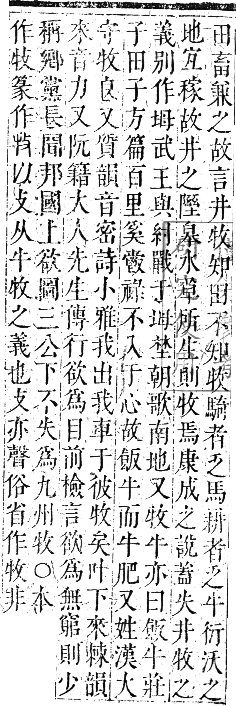 田畜兼之故言井牧知田不知牧騎者乏馬耕者乏牛衍沃之
地宜稼故井之隰皋水草所生則牧焉康成之說蓋失井牧之
義別作坶武王與紂戰于坶埜朝歌南地又牧牛亦曰飯牛莊
子田子方篇百里奚爵祿不入于心故飯牛而牛肥又姓漢大
守牧良又質韻音密詩小雅我出我車于彼牧矣叶下來棘韻
來音力又阮籍大人先生傳行欲爲目前檢言欲爲無窮則少
稱鄉黨長聞邦國上欲圖三公下不失爲九州牧○本
作牧篆作𤘽以攴从牛牧之義也攴亦聲俗省作牧非